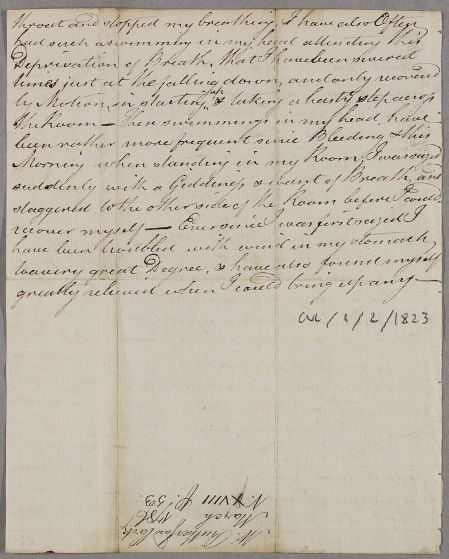 throat and stopped my breathing. I have also Often
had such a swimming in my head attending this
Deprivation of Breath, that I have been several
times just at the falling down, and only recovered
by Motion, in starting up & taking a hasty step across
the Room — These swimmings in my head have
been rather more frequent since Bleeding, & this
Morning when standing in my Room, I was seized
suddenly with a Giddiness & want of Breath, and
staggered to the other side of the Room before I could
recover myself — Ever since I was first seized I
have been troubled with wind in my stomach
to a very great Degree, & have also found myself
greatly relieved when I could bring up any —
/ 1 / 2 / 1823
Mr
March
N. XVIII